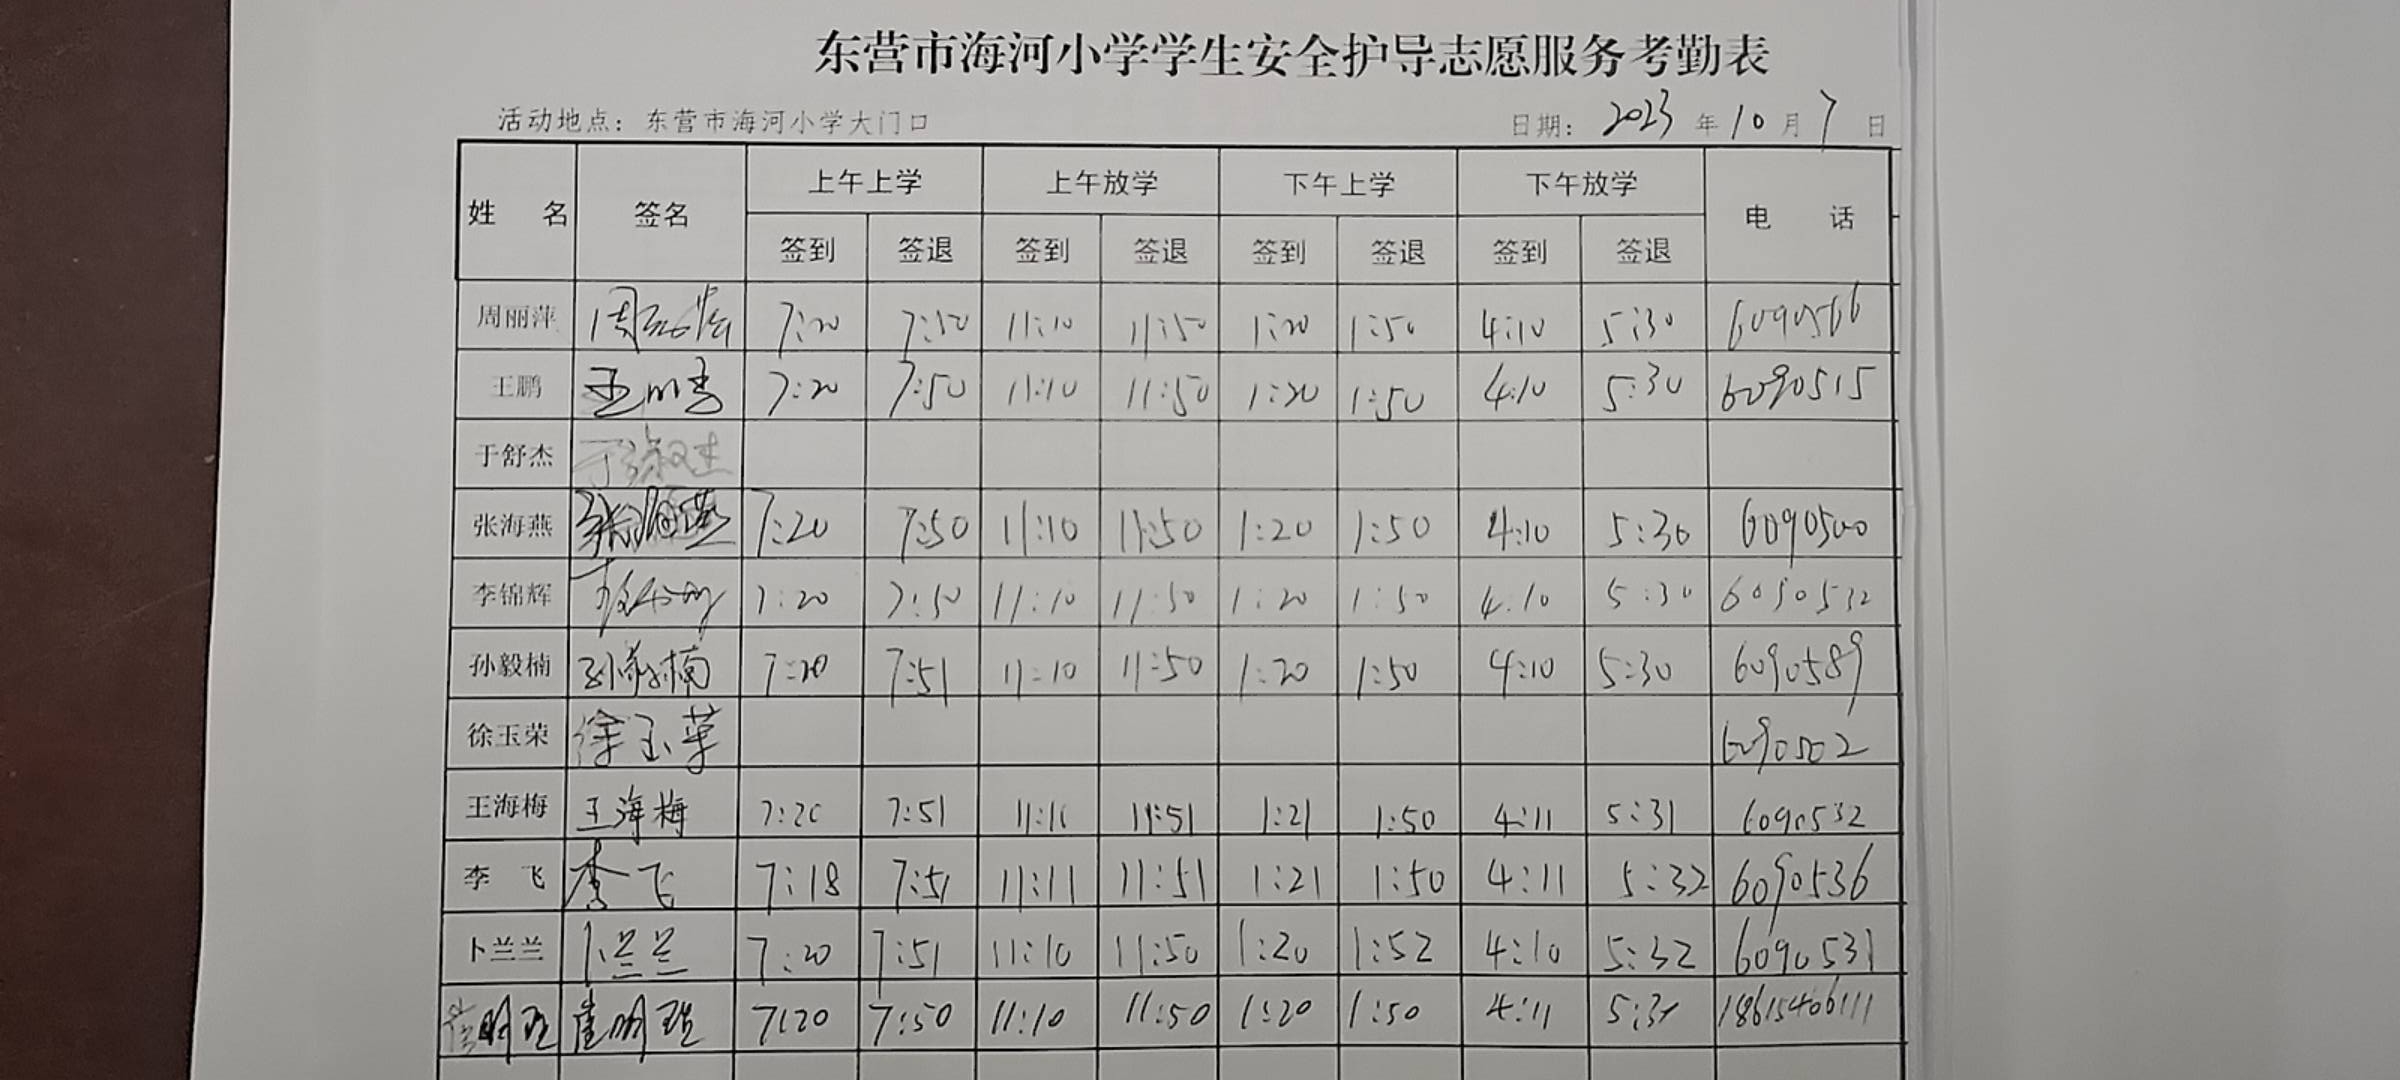 东营市海河小学学生安全护导志愿服务考勤表
活动地点：东营市海河小学大门口 日期：2023年10月7日
姓名 签名 上午上学 上午放学 下午上学 下午放学 电话
签到 签退 签到 签退 签到 签退 签到 签退
周丽萍 周丽萍 7:20 7:50 11:10 11:50 1:20 1:50 4:10 5:30 6090566
王鹏 王鹏 7:20 7:50 11:10 11:50 1:20 1:50 4:10 5:30 6090515
于舒杰 于舒杰
张海燕 张海燕 7:20 7:50 11:10 11:50 1:20 1:50 4:10 5:30 6090500
李锦辉 李锦辉 7:20 7:50 11:10 11:50 1:20 1:50 4:10 5:30 6090532
孙毅楠 孙毅楠 7:20 7:51 11:10 11:50 1:20 1:50 4:10 5:30 6090589
徐玉荣 徐玉荣 6090502
王海梅 王海梅 7:20 7:51 11:11 11:51 1:21 1:50 4:11 5:31 6090532
李飞 李飞 7:18 7:51 11:11 11:51 1:21 1:50 4:11 5:32 6090536
卜兰兰 卜兰兰 7:20 7:51 11:10 11:50 1:20 1:52 4:10 5:32 6090531
崔明 崔明 7:20 7:50 11:10 11:50 1:20 1:50 4:11 18615406111